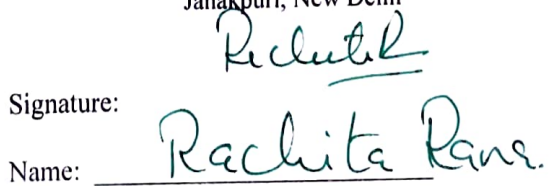 Janakpuri, New Delhi
Signature:
Name: Rachita Rana.